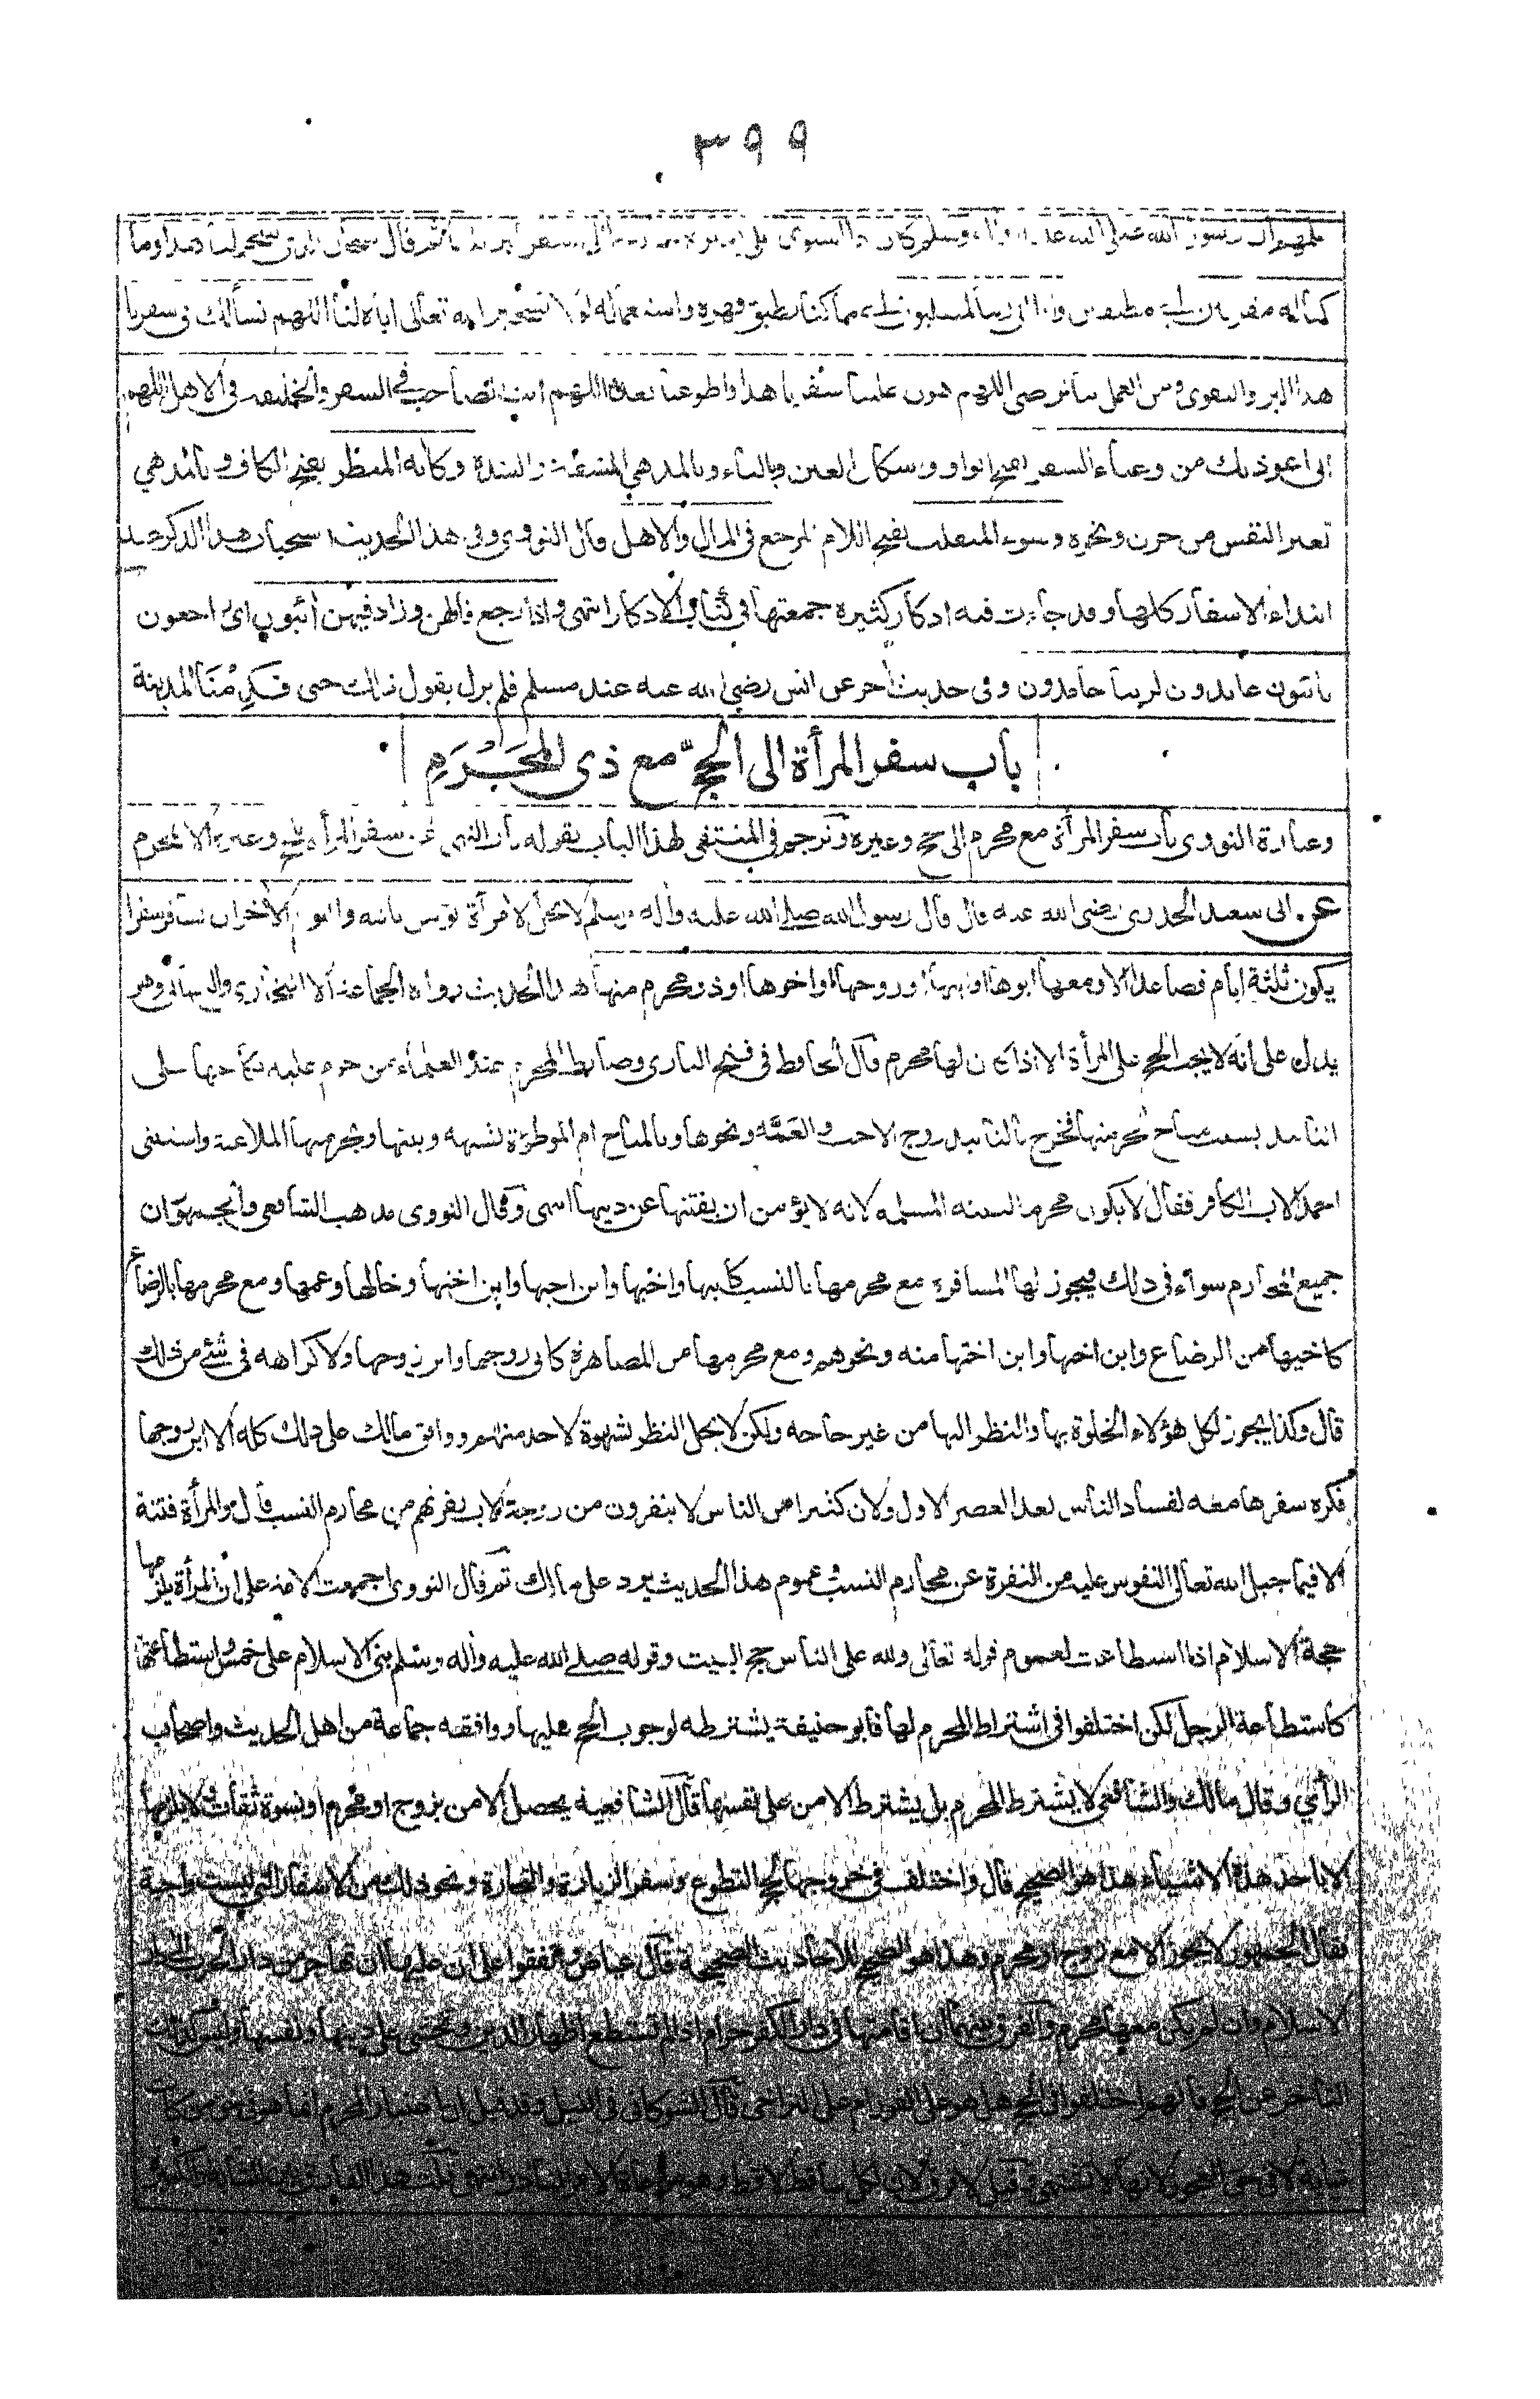 ٣٩٩
علمهم ان رسول الله صلى الله عليه واله وسلم كان اذا استوى على بعيره خارجا الى سفر كبر ثلاثا ثم قال سبحان الذي سخر لنا هذا وما
كنا له مقرنين اى مطيقين اى ما كنا نطيق قهره واستعماله لولا تسخير الله تعالى اياه لنا اللهم نسألك فى سفرنا
هذا البر والتقوى ومن العمل ما ترضى اللهم هون علينا سفرنا هذا واطو عنا بعده اللهم انت الصاحب فى السفر والخليفة فى الاهل اللهم
انى اعوذ بك من وعثاء السفر بفتح الواو واسكان العين وبالثاء وبالمد هى المشقة والشدة وكابة المنظر بفتح الكاف وبالمد هي
تغير النفس من حزن ونحوه وسوء المنقلب بفتح اللام المرجع فى المال والاهل قال النووى وفى هذا الحديث استحباب هذا الذكر عند
ابتداء الاسفار كلها وقد جاءت فيه اذكار كثيرة جمعتها فى كتاب الاذكار انتهى واذا رجع قالهن وزاد فيهن أئبون اى راجعون
تائبون عابدون لربنا حامدون وفى حديث أخر عن انس رضي الله عنه عند مسلم فلم يزل يقول ذلك حتى قدمنا المدينة
باب سفر المرأة الى الحج مع ذى المحرم
وعبارة النووى باب سفر المرأة مع محرم الى حج وغيره وترجم فى المنتقى لهذا الباب بقوله باب النهي عن سفر المرأة للحج وغيره الا بمحرم
عن ابى سعيد الخدرى رضى الله عنه قال قال رسول الله صلى الله عليه واله وسلم لا يحل لامرأة تؤمن بالله واليوم الأخر ان تسافر سفرا
يكون ثلثة ايام فصاعدا الا ومعها ابوها او ابنها او زوجها او اخوها او ذو محرم منها هذا الحديث رواه الجماعة الا البخارى والنسائى وهو
يدل على انه لا يجب الحج على المرأة الا اذا كان لها محرم قال الحافظ فى فتح البارى وضابط المحرم عند العلماء من حرم عليه نكاحها على
التابيد بسبب مباح لحرمتها فخرج بالتأبيد زوج الاخت والعمة ونحوها وبالمباح ام الموطوءة بشبهة وبنتها وبحرمتها الملاعنة واستثنى
احمد الاب الكافر فقال لا يكون محرما لبنته المسلمة لانه لا يؤمن ان يفتنها عن دينها انتهى وقال النووى مذهب الشافعى والجمهور ان
جميع المحارم سواء فى ذلك فيجوز لها المسافرة مع محرمها بالنسب كابنها واخيها وابن اخيها وابن اختها وخالها وعمها ومع محرمها بالرضاع
كاخيها من الرضاع وابن اخيها وابن اختها منه ونحوهم ومع محرمها من المصاهرة كابى زوجها وابن زوجها ولا كراهة فى شئ من ذلك
قال وكذا يجوز لكل هؤلاء الخلوة بها والنظر اليها من غير حاجة ولكن لا يحل النظر بشهوة لاحد منهم ووافق مالك على ذلك كله الا ابن زوجها
فكره سفرها معه لفساد الناس بعد العصر الاول ولان كثيرا من الناس لا ينفرون من زوجة الاب نفرتهم من محارم النسب قال والمرأة فتنة
الا فيما جبل الله تعالى النفوس عليه من النفرة عن محارم النسب وعموم هذا الحديث يرد على مالك ثم قال النووى اجمعت الامة على ان المرأة يلزمها
حجة الاسلام اذا استطاعت لعموم قوله تعالى ولله على الناس حج البيت وقوله صلى الله عليه واله وسلم بنى الاسلام على خمس واستطاعتها
كاستطاعة الرجل لكن اختلفوا فى اشتراط المحرم لها فابو حنيفة يشترطه لوجوب الحج عليها ووافقه جماعة من اهل الحديث واصحاب
الرأي وقال مالك والشافعى لا يشترط المحرم بل يشترط الامن على نفسها قال الشافعية يحصل الامن بزوج او محرم او نسوة ثقات ولا يلزمها
الا باحد هذه الاشياء هذا هو الصحيح قال واختلف فى خروجها لحج التطوع وسفر الزيارة والتجارة ونحو ذلك من الاسفار التى ليست واجبة
فقال الجمهور لا يجوز الا مع زوج او محرم وهذا هو الصحيح للاحاديث الصحيحة قال عياض واتفقوا على ان عليها ان تهاجر من دار الحرب الى دار
الاسلام وان لم يكن معها محرم والفرق بينهما ان اقامتها فى دار الكفر حرام اذا لم تستطع اظهار الدين وتخشى على دينها ونفسها وليس كذلك
التأخر عن الحج فانهم اختلفوا فى الحج هل هو على الفور ام على التراخى قال الشوكانى فى النيل وقد قيل ان اعتبار المحرم انما هو فى حق من كانت
شابة لا فى حق العجوز لانها لا تشتهى وقيل لا فرق لان لكل ساقط لاقط وهو مراعاة للامر النادر انتهى